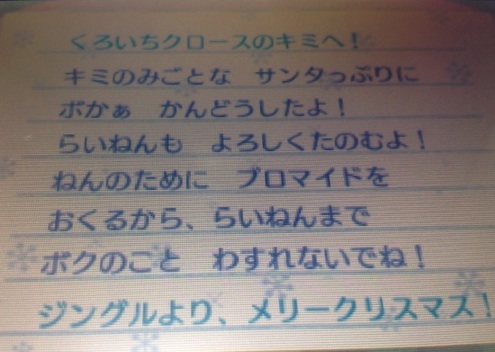 くろいちクロースのキミへ！
キミのみごとな　サンタっぷりに
ボかぁ　かんどうしたよ！
らいねんも　よろしくたのむよ！
ねんのために　ブロマイドを
おくるから、らいねんまで
ボクのこと　わすれないでね！
ジングルより、メリークリスマス！